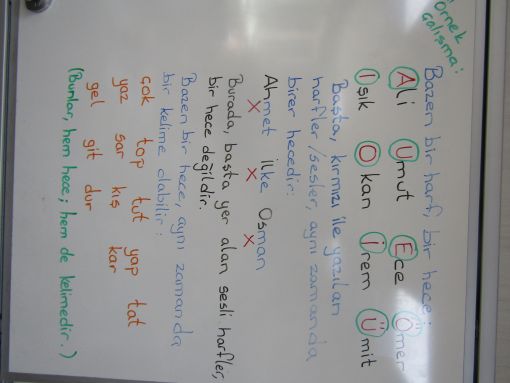 Örnek
çalışma:
Bazen bir harf, bir hece;
Ali Umut Ece Ömer
Işık Okan İrem Ümit
Başta, kırmızı ile yazılan
harfler/sesler, aynı zamanda
birer hecedir:
Ahmet İlke Osman
x x x
Burada, başta yer alan sesli harfler,
bir hece değildir.
Bazen bir hece, aynı zamanda
bir kelime olabilir:
çok top tut yap tat
yaz sar kış kar
gel git dur
(Bunlar, hem hece; hem de kelimedir.)